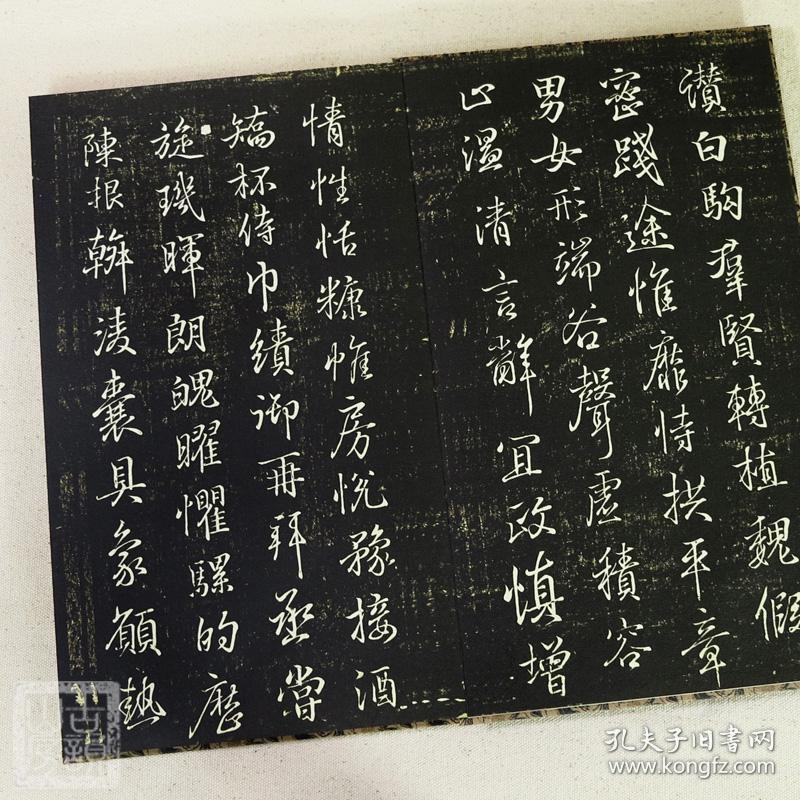 讃白駒羣賢轉植魏假
密踐途惟靡恃拱平章
男女形端谷聲虛積容
止溫清言辭宜政慎增
情性恬糠帷房悅豫接酒
矯杯侍巾績御再拜烝嘗
旋璣暉朗魄曜懼騾的歷
陳根榦淩囊具象顧熱
孔夫子旧书网
www.kongfz.com